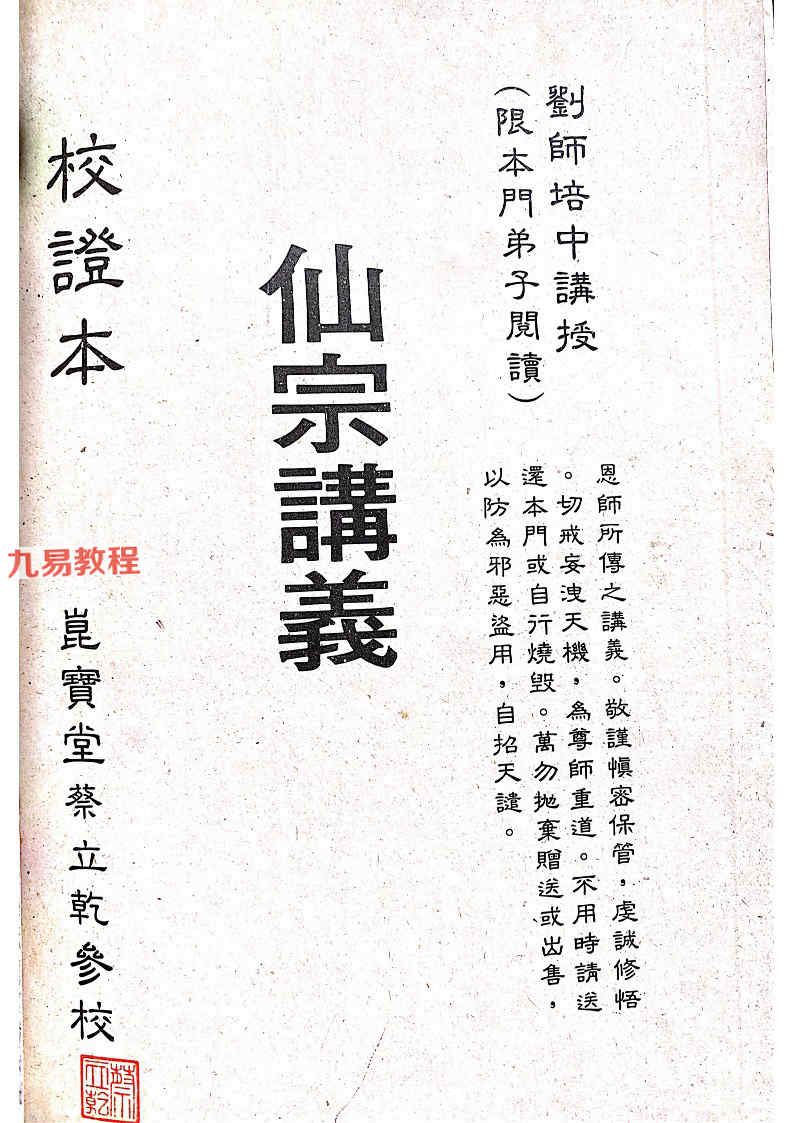 劉師培中講授
(限本門弟子閱讀)
恩師所傳之講義。敬謹慎密保管，虔誠修悟
。切戒妄洩天機，為尊師重道。不用時請送
還本門或自行燒毀。萬勿拋棄贈送或出售，
以防為邪惡盜用，自招天譴。
仙宗講義
校證本
崑寶堂蔡立乾參校
蔡立乾
九易教程